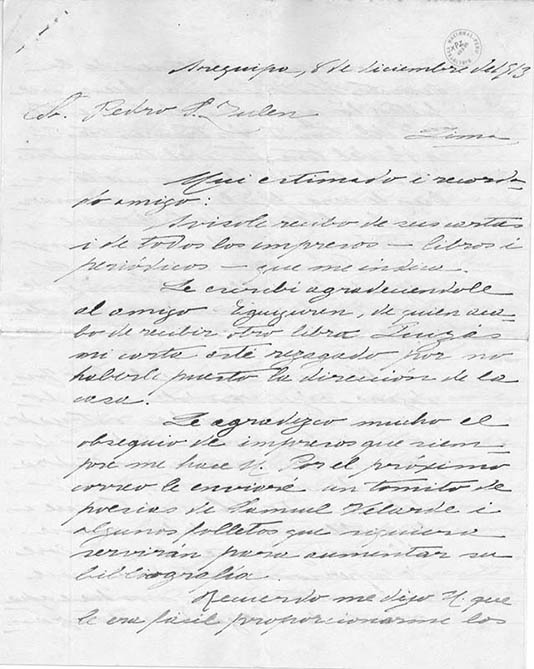 Arequipa, 8 de diciembre de 1913
Sr. Pedro S. Zulen
Lima
Mui estimado i recorda-
do amigo:
Avísole recibo de sus cartas
i de todos los impresos — libros i
periódicos — que me indica.
Le escribí agradeciendole
al amigo Eguiguren, de quien aca-
bo de recibir otro libro. Quizás
mi carta esté rezagado por no
haberle puesto la direción de la
casa.
Le agradezco mucho el
obsequio de impresos que siem-
pre me hace U. Por el próximo
correo le enviaré un tomito de
poesías de Samuel Velarde i
algunos folletos que siquiera
servirán para aumentar su
bibliografía.
Recuerdo me dijo U. que
le era fásil proporcionarme los